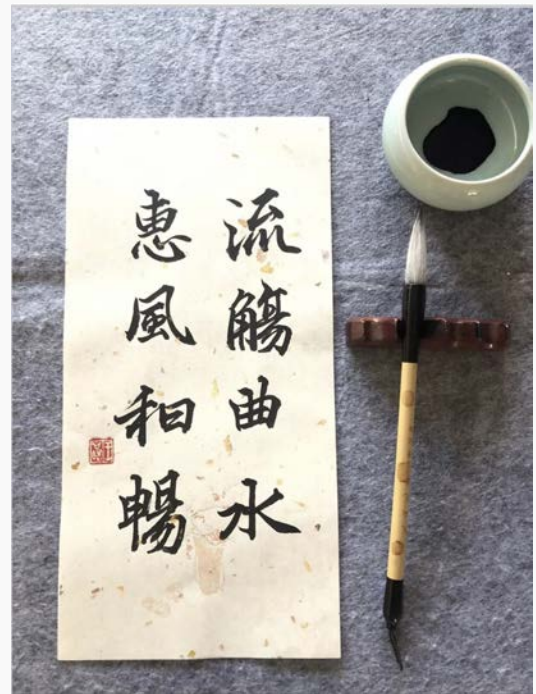 流觴曲水
惠風和暢